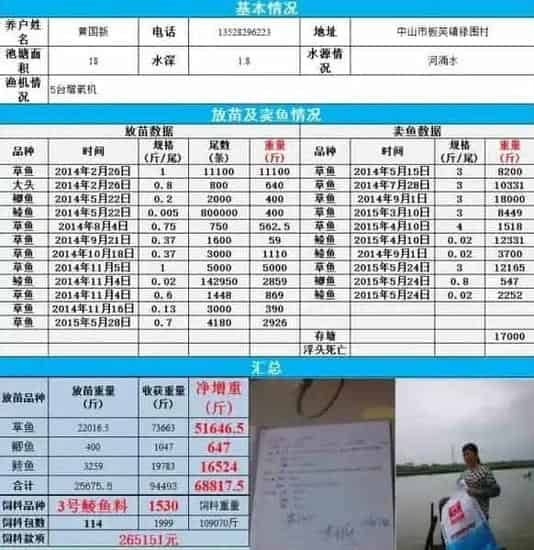 基本情况
养户姓名 黄国新 电话 13528296223 地址 中山市板芙镇禄围村
池塘面积 18 水深 1.8 水源情况 河涌水
渔机情况 5台增氧机
放苗及卖鱼情况
放苗数据 卖鱼数据
品种 时间 规格(斤/尾) 尾数(条) 重量(斤) 品种 时间 规格(斤/尾) 重量(斤)
草鱼 2014年2月26日 1 11100 11100 草鱼 2014年5月15日 3 8200
大头 2014年2月26日 0.8 800 640 草鱼 2014年7月28日 3 10331
鲫鱼 2014年5月22日 0.2 2000 400 草鱼 2014年9月1日 3 18000
鲮鱼 2014年5月22日 0.005 800000 400 草鱼 2015年3月10日 3 8449
草鱼 2014年8月4日 0.75 750 562.5 草鱼 2015年4月10日 4 1518
草鱼 2014年9月21日 0.37 1600 59 鲮鱼 2015年4月10日 0.02 12331
草鱼 2014年10月18日 0.37 3000 1110 鲮鱼 2014年9月1日 0.02 3700
草鱼 2014年11月5日 1 5000 5000 草鱼 2015年5月24日 3 12165
鲮鱼 2014年11月4日 0.02 142950 2859 鲫鱼 2015年5月24日 0.8 547
草鱼 2014年11月4日 0.6 1448 869 鲮鱼 2015年5月24日 0.02 2252
草鱼 2014年11月16日 0.13 3000 390
草鱼 2015年5月28日 0.7 4180 2926
存塘 17000
浮头死亡
汇总
放苗品种 放苗重量(斤) 收获重量(斤) 净增重(斤)
草鱼 22016.5 73663 51646.5
鲫鱼 400 1047 647
鲮鱼 3259 19783 16524
合计 25675.5 94493 68817.5
饲料品种 3号鲮鱼料 1530 饲料重量
饲料包数 114 1999 109070斤
饲料款项 265151元